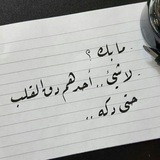 ما بك ؟
لا شيئ .. أحدهم دق القلب
حتى دكه ..